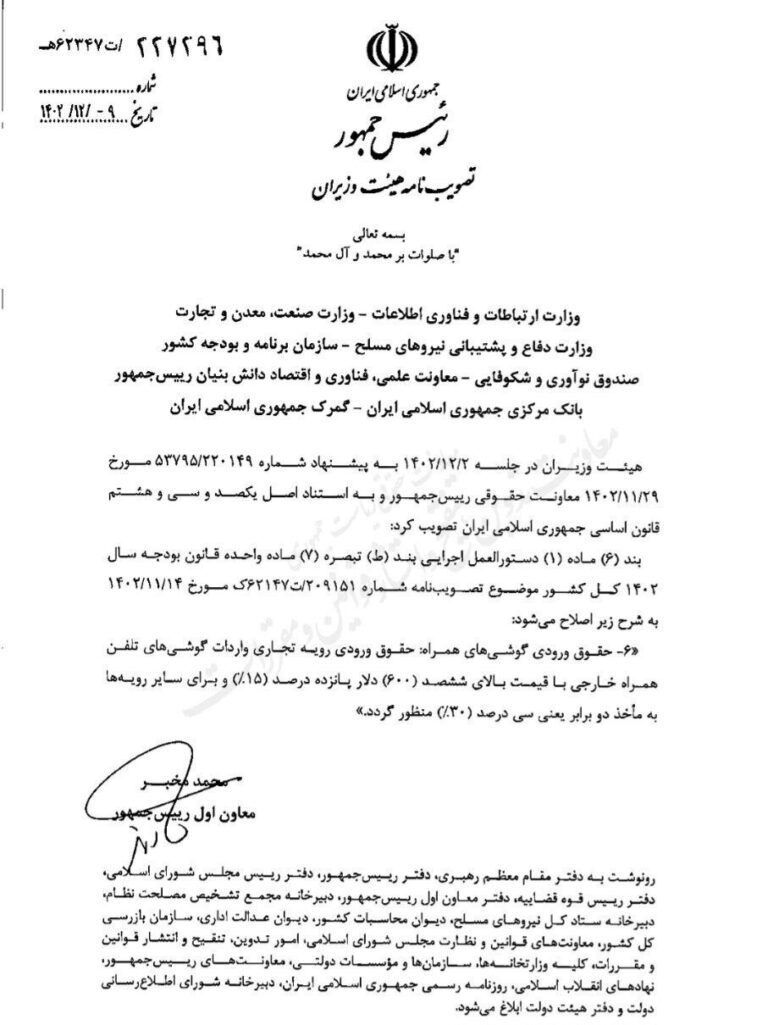 ۲۲۷۲۹۶ /ت۶۲۳۴۷هـ
شماره
تاریخ ۱۴۰۲/۱۲/۰۹
جمهوری اسلامی ایران
رئیس جمهور
تصویب نامه هیئت وزیران
بسمه تعالی
"با صلوات بر محمد و آل محمد"
وزارت ارتباطات و فناوری اطلاعات – وزارت صنعت، معدن و تجارت
وزارت دفاع و پشتیبانی نیروهای مسلح – سازمان برنامه و بودجه کشور
صندوق نوآوری و شکوفایی – معاونت علمی، فناوری و اقتصاد دانش بنیان رییس‌جمهور
بانک مرکزی جمهوری اسلامی ایران – گمرک جمهوری اسلامی ایران
هیئت وزیران در جلسه ۱۴۰۲/۱۲/۲ به پیشنهاد شماره ۵۳۷۹۵/۲۲۰۱۴۹ مورخ
۱۴۰۲/۱۱/۲۹ معاونت حقوقی رییس‌جمهور و به استناد اصل یکصد و سی و هشتم
قانون اساسی جمهوری اسلامی ایران تصویب کرد:
بند (۶) ماده (۱) دستورالعمل اجرایی بند (ط) تبصره (۷) ماده واحده قانون بودجه سال
۱۴۰۲ کل کشور موضوع تصویب‌نامه شماره ۲۰۹۱۵۱/ت۶۲۱۴۷ک مورخ ۱۴۰۲/۱۱/۱۴
به شرح زیر اصلاح می‌شود:
«۶- حقوق ورودی گوشی‌های همراه: حقوق ورودی رویه تجاری واردات گوشی‌های تلفن
همراه خارجی با قیمت بالای ششصد (۶۰۰) دلار پانزده درصد (۱۵٪) و برای سایر رویه‌ها
به مأخذ دو برابر یعنی سی درصد (۳۰٪) منظور گردد.»
محمد مخبر
معاون اول رییس‌جمهور
رونوشت به دفتر مقام معظم رهبری، دفتر رییس‌جمهور، دفتر رییس مجلس شورای اسلامی،
دفتر رییس قوه قضاییه، دفتر معاون اول رییس‌جمهور، دبیرخانه مجمع تشخیص مصلحت نظام،
دبیرخانه ستاد کل نیروهای مسلح، دیوان محاسبات کشور، دیوان عدالت اداری، سازمان بازرسی
کل کشور، معاونت‌های قوانین و نظارت مجلس شورای اسلامی، امور تدوین، تنقیح و انتشار قوانین
و مقررات، کلیه وزارتخانه‌ها، سازمان‌ها و مؤسسات دولتی، معاونت‌های رییس‌جمهور،
نهادهای انقلاب اسلامی، روزنامه رسمی جمهوری اسلامی ایران، دبیرخانه شورای اطلاع‌رسانی
دولت و دفتر هیئت دولت ابلاغ می‌شود.